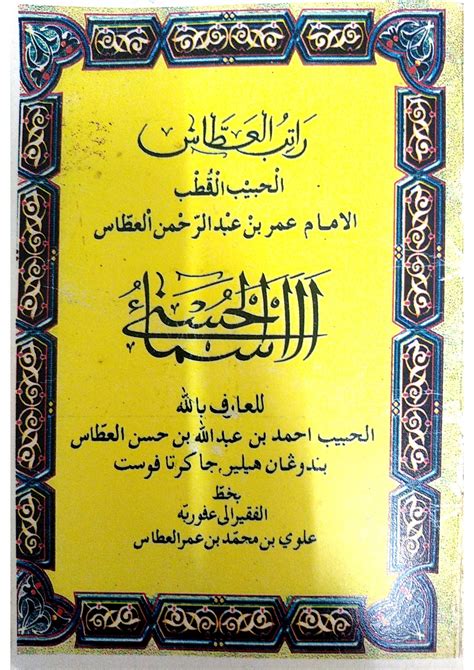 رَاتِبُ الْعَطَّاسِ
الْحَبِيْبِ الْقُطْبِ
الامام عمر بن عَبْدِ الرَّحْمٰنِ الْعَطّاس
اَلْاَسْمَاءُ الْحُسْنَى
للعارف بالله
الحبيب احمد بن عبدالله بن حسن العطاس
بندوڠان هيلير جاكرتا فوست
بخطّ
الفقير الى عفو ربّه
علوي بن محمّد بن عمر العطاس